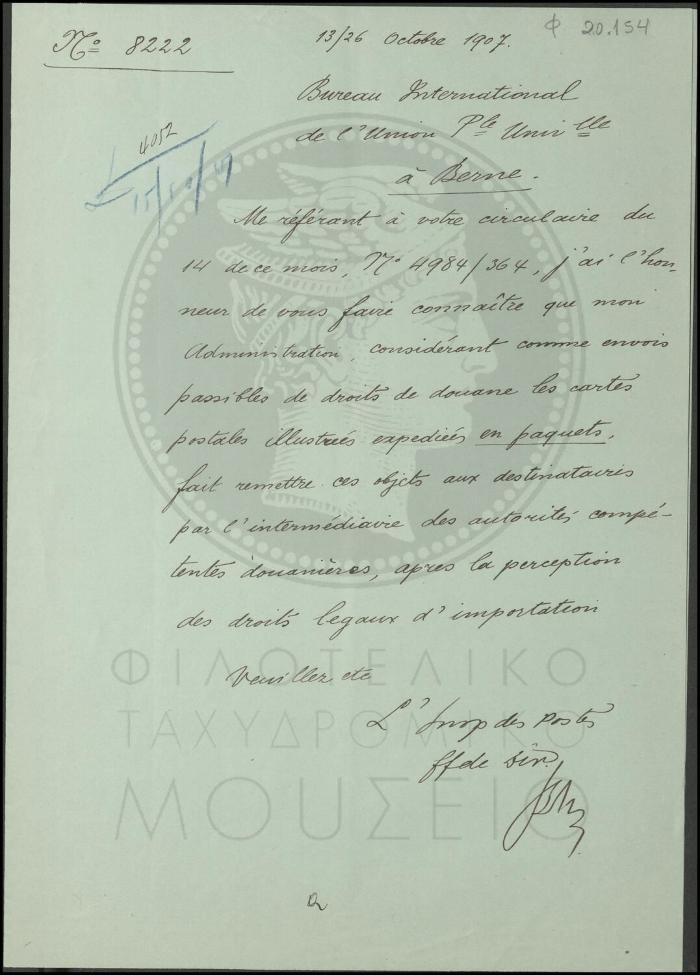 Nº 8222
13/26 Octobre 1907.
Φ 20.154
Bureau International
de l'Union Pˡᵉ Univˡˡᵉ
à Berne.
4052
Me référant à votre circulaire du
14 de ce mois, Nº 4984/364, j'ai l'hon-
neur de vous faire connaître que mon
Administration, considérant comme envois
passibles de droits de douane les cartes
postales illustrées expediées en paquets,
fait remettre ces objets aux destinataires
par l'intermédiaire des autorités compé-
tentes douanières, après la perception
des droits legaux d'importation
Veuillez etc
L'Insp des Postes
ff de Dir.
ΦΙΛΟΤΕΛΙΚΟ
ΤΑΧΥΔΡΟΜΙΚΟ
ΜΟΥΣΕΙΟ